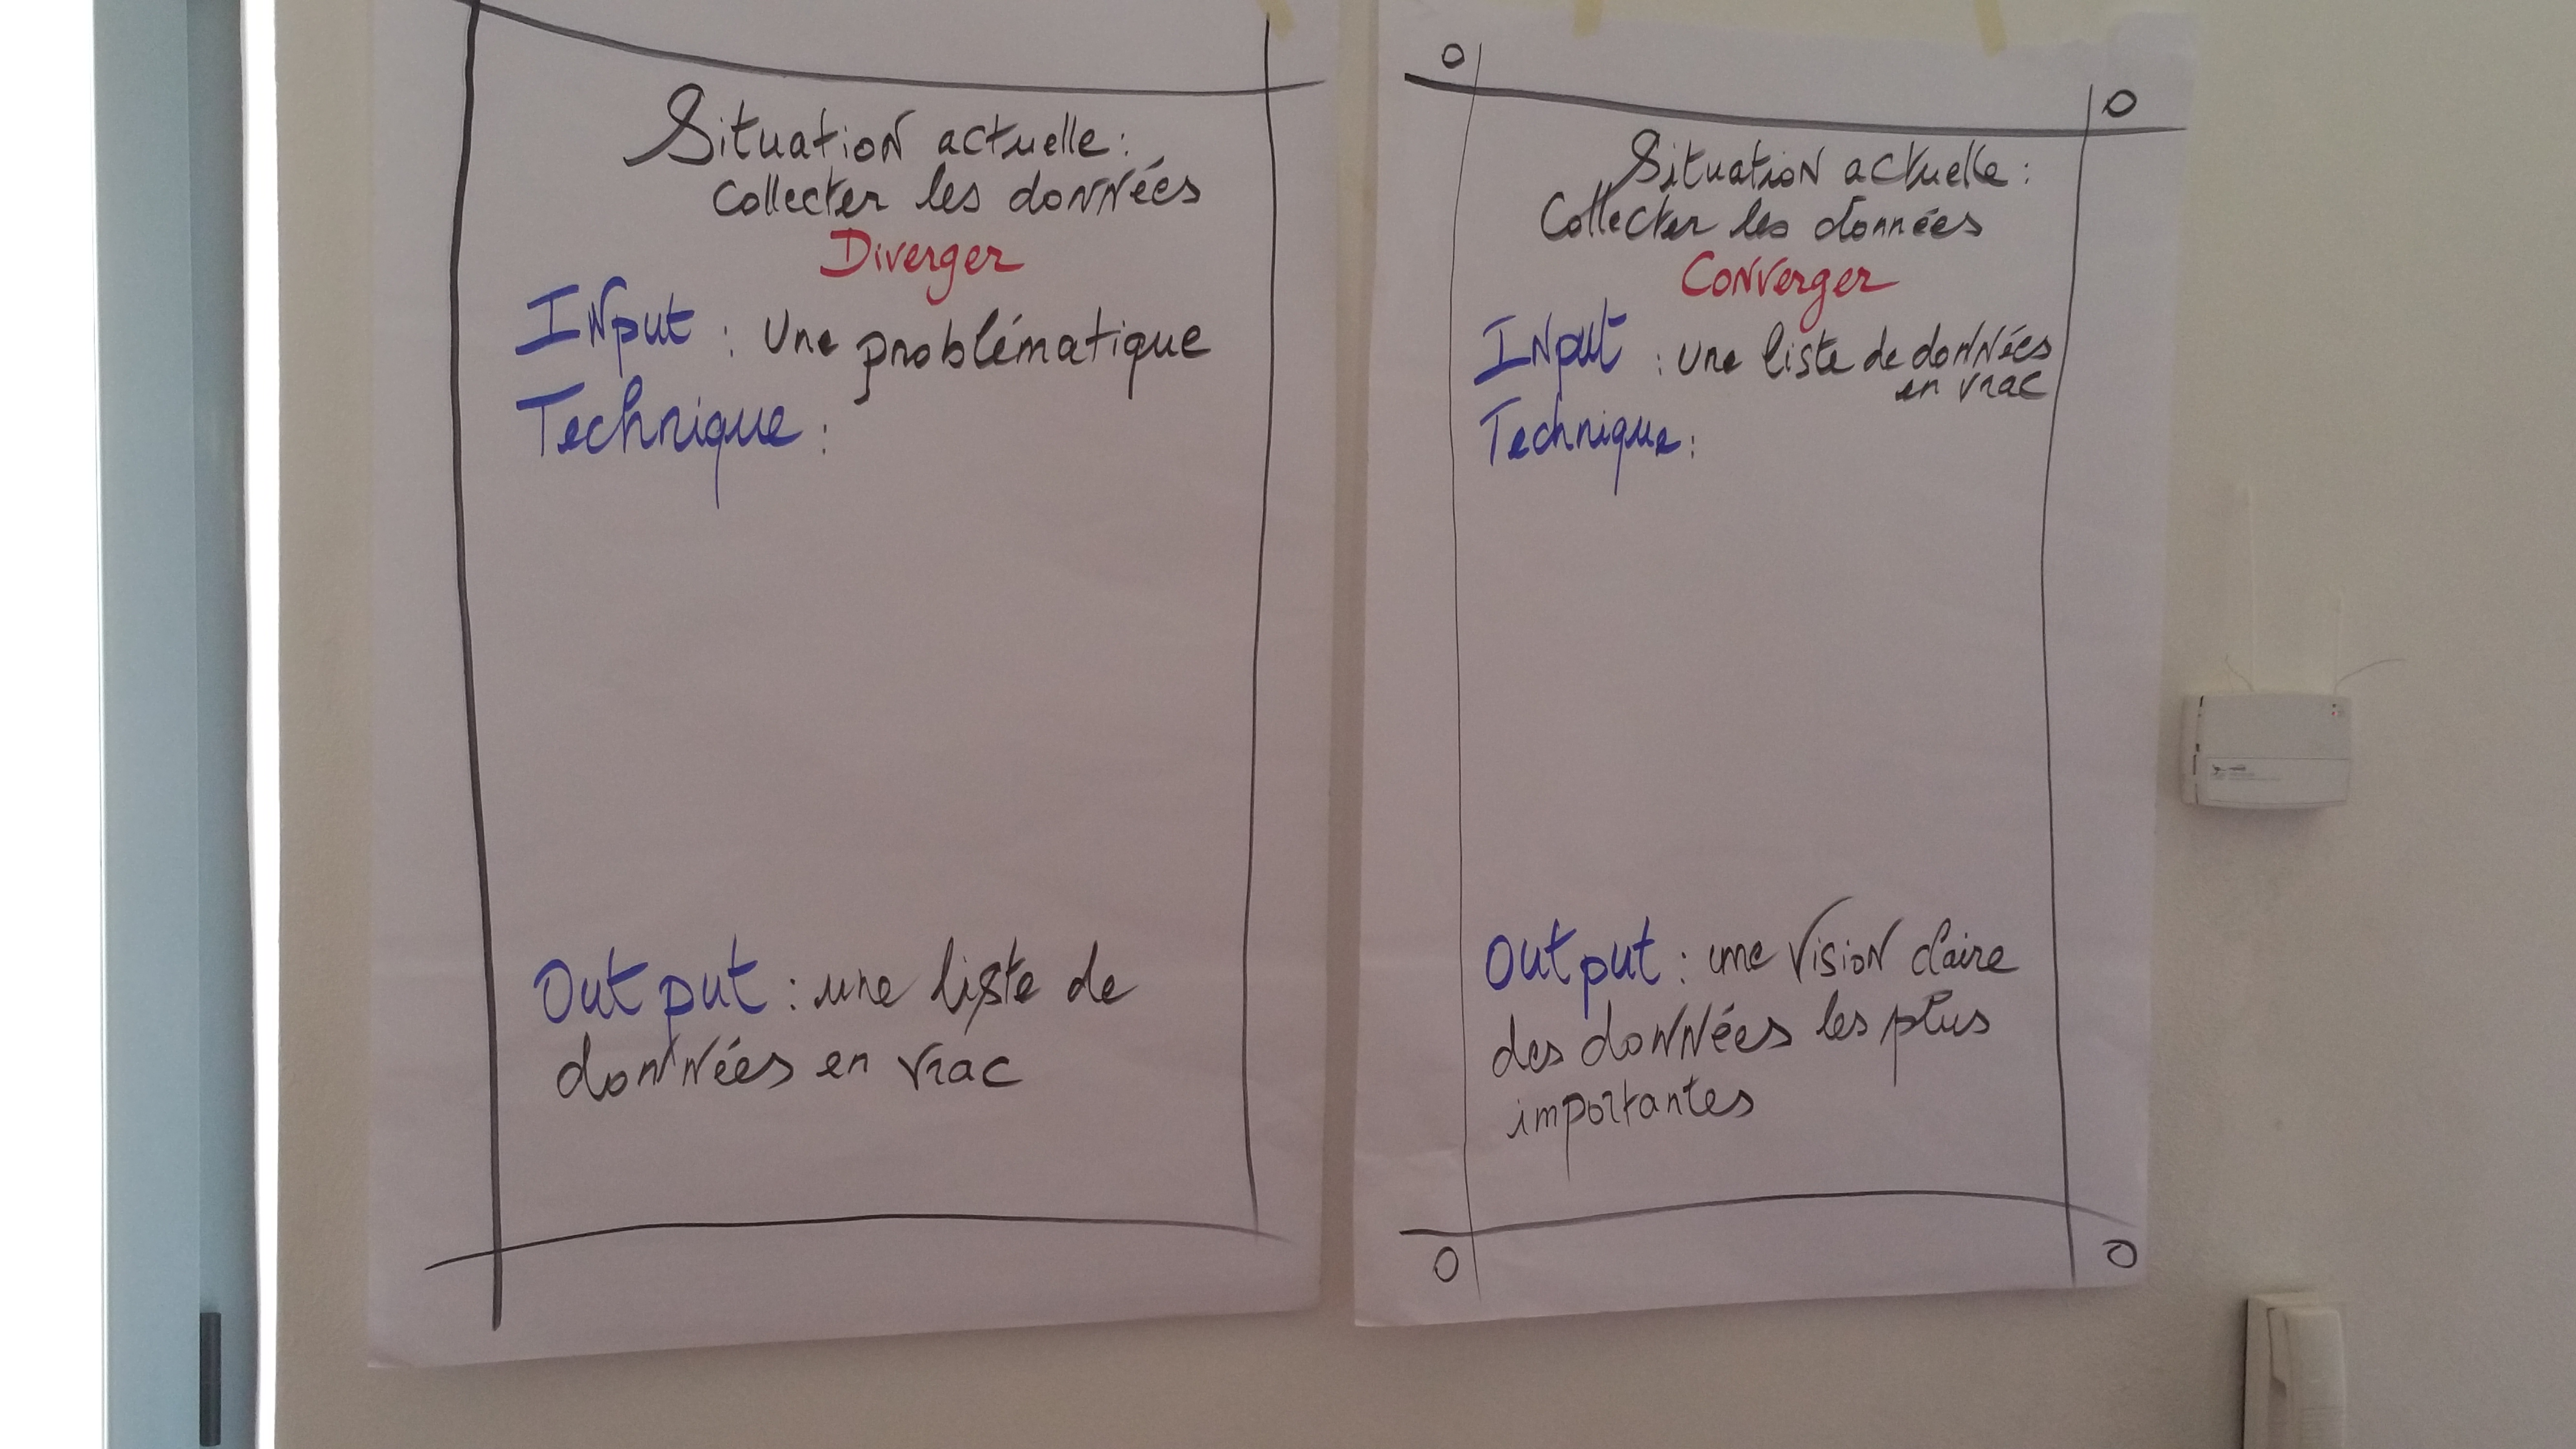 Situation actuelle :
Collecter les données
Diverger
Input : Une problématique
Technique :
Output : une liste de
données en vrac
O
O
Situation actuelle :
Collecter les données
Converger
Input : une liste de données
en vrac
Technique :
Output : une vision claire
des données les plus
importantes
O
O